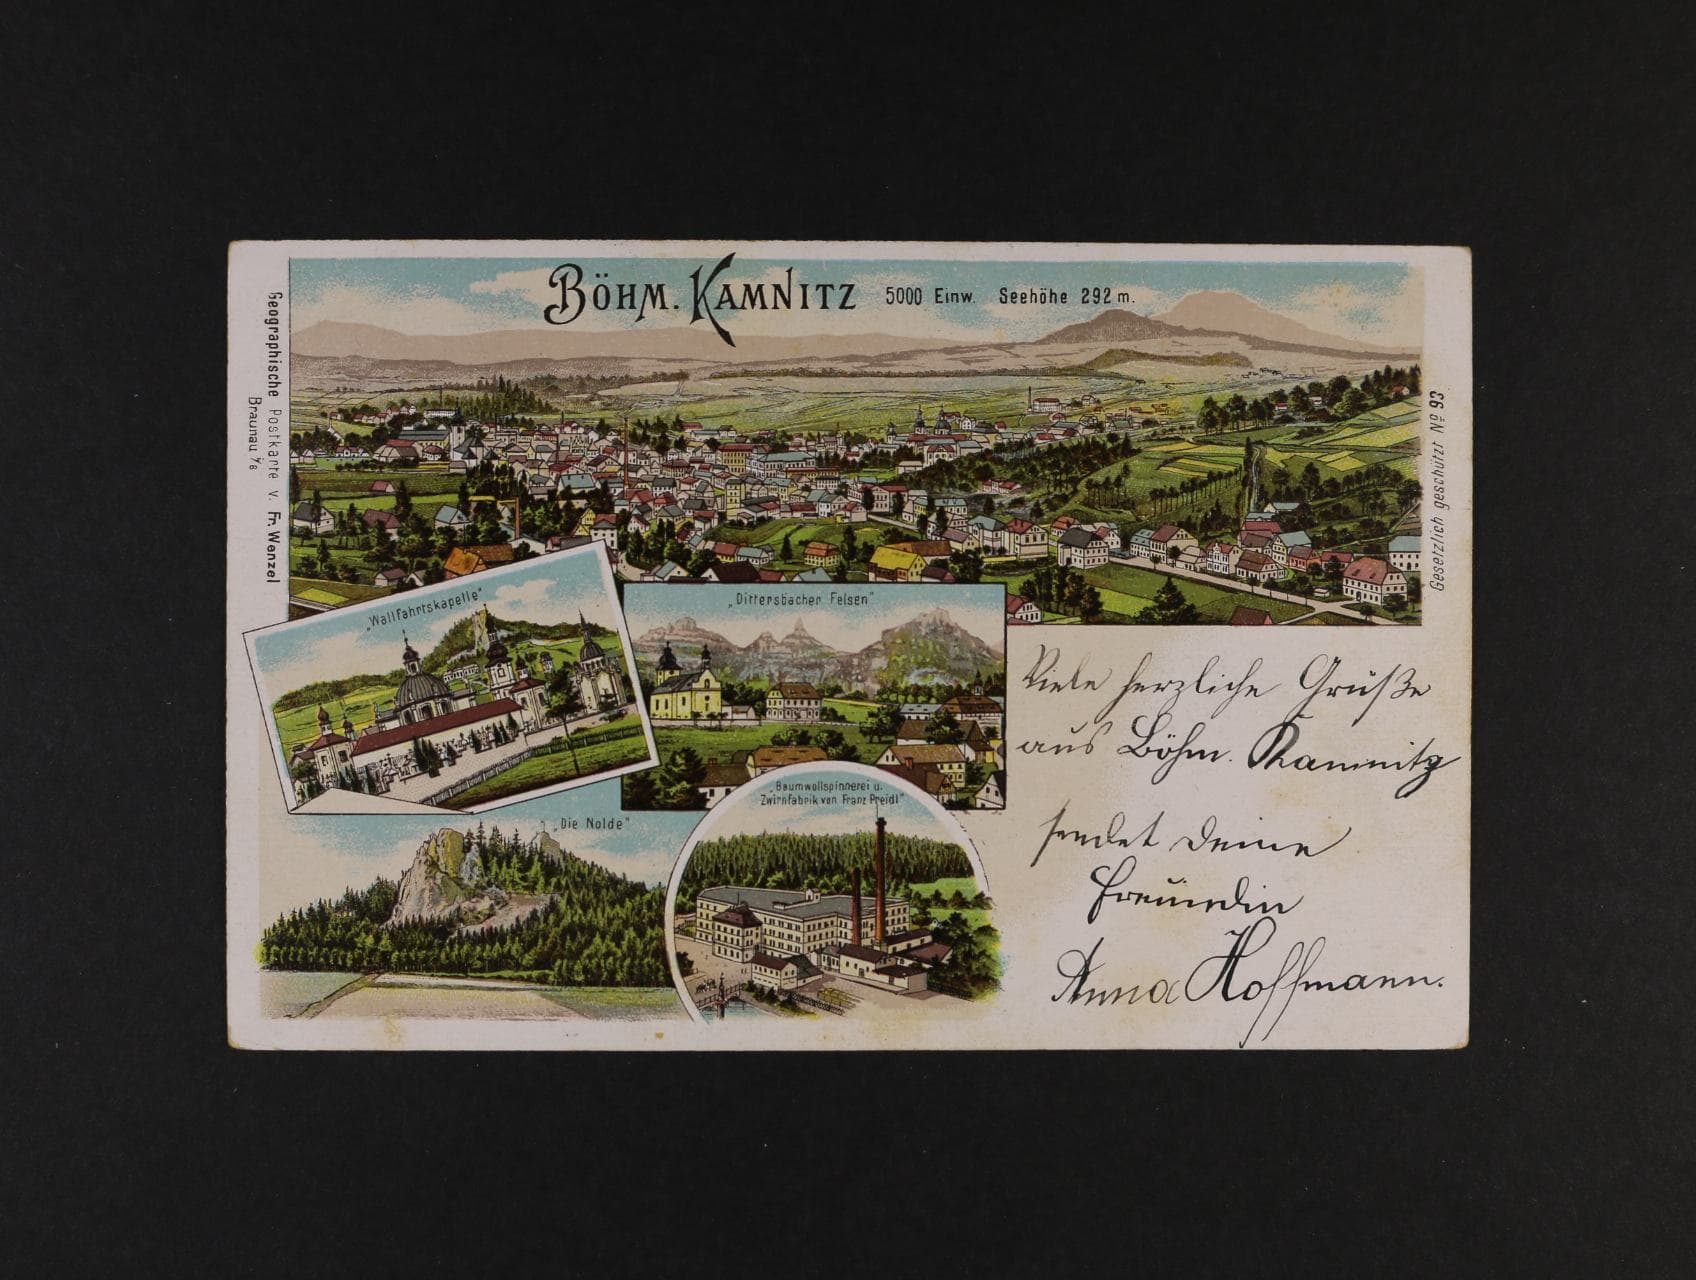 BÖHM. KAMNITZ 5000 Einw. Seehöhe 292 m.
Geographische Postkarte v. Fr. Wenzel
Braunau i/B
Gesetzlich geschützt No 93
„Wallfahrtskapelle"
„Dittersbacher Felsen"
„Die Nolde"
„Baumwollspinnerei u.
Zwirnfabrik von Franz Preidl"
Viele herzliche Grüße
aus Böhm. Kamnitz
sendet Deine
Freundin
Anna Hoffmann.